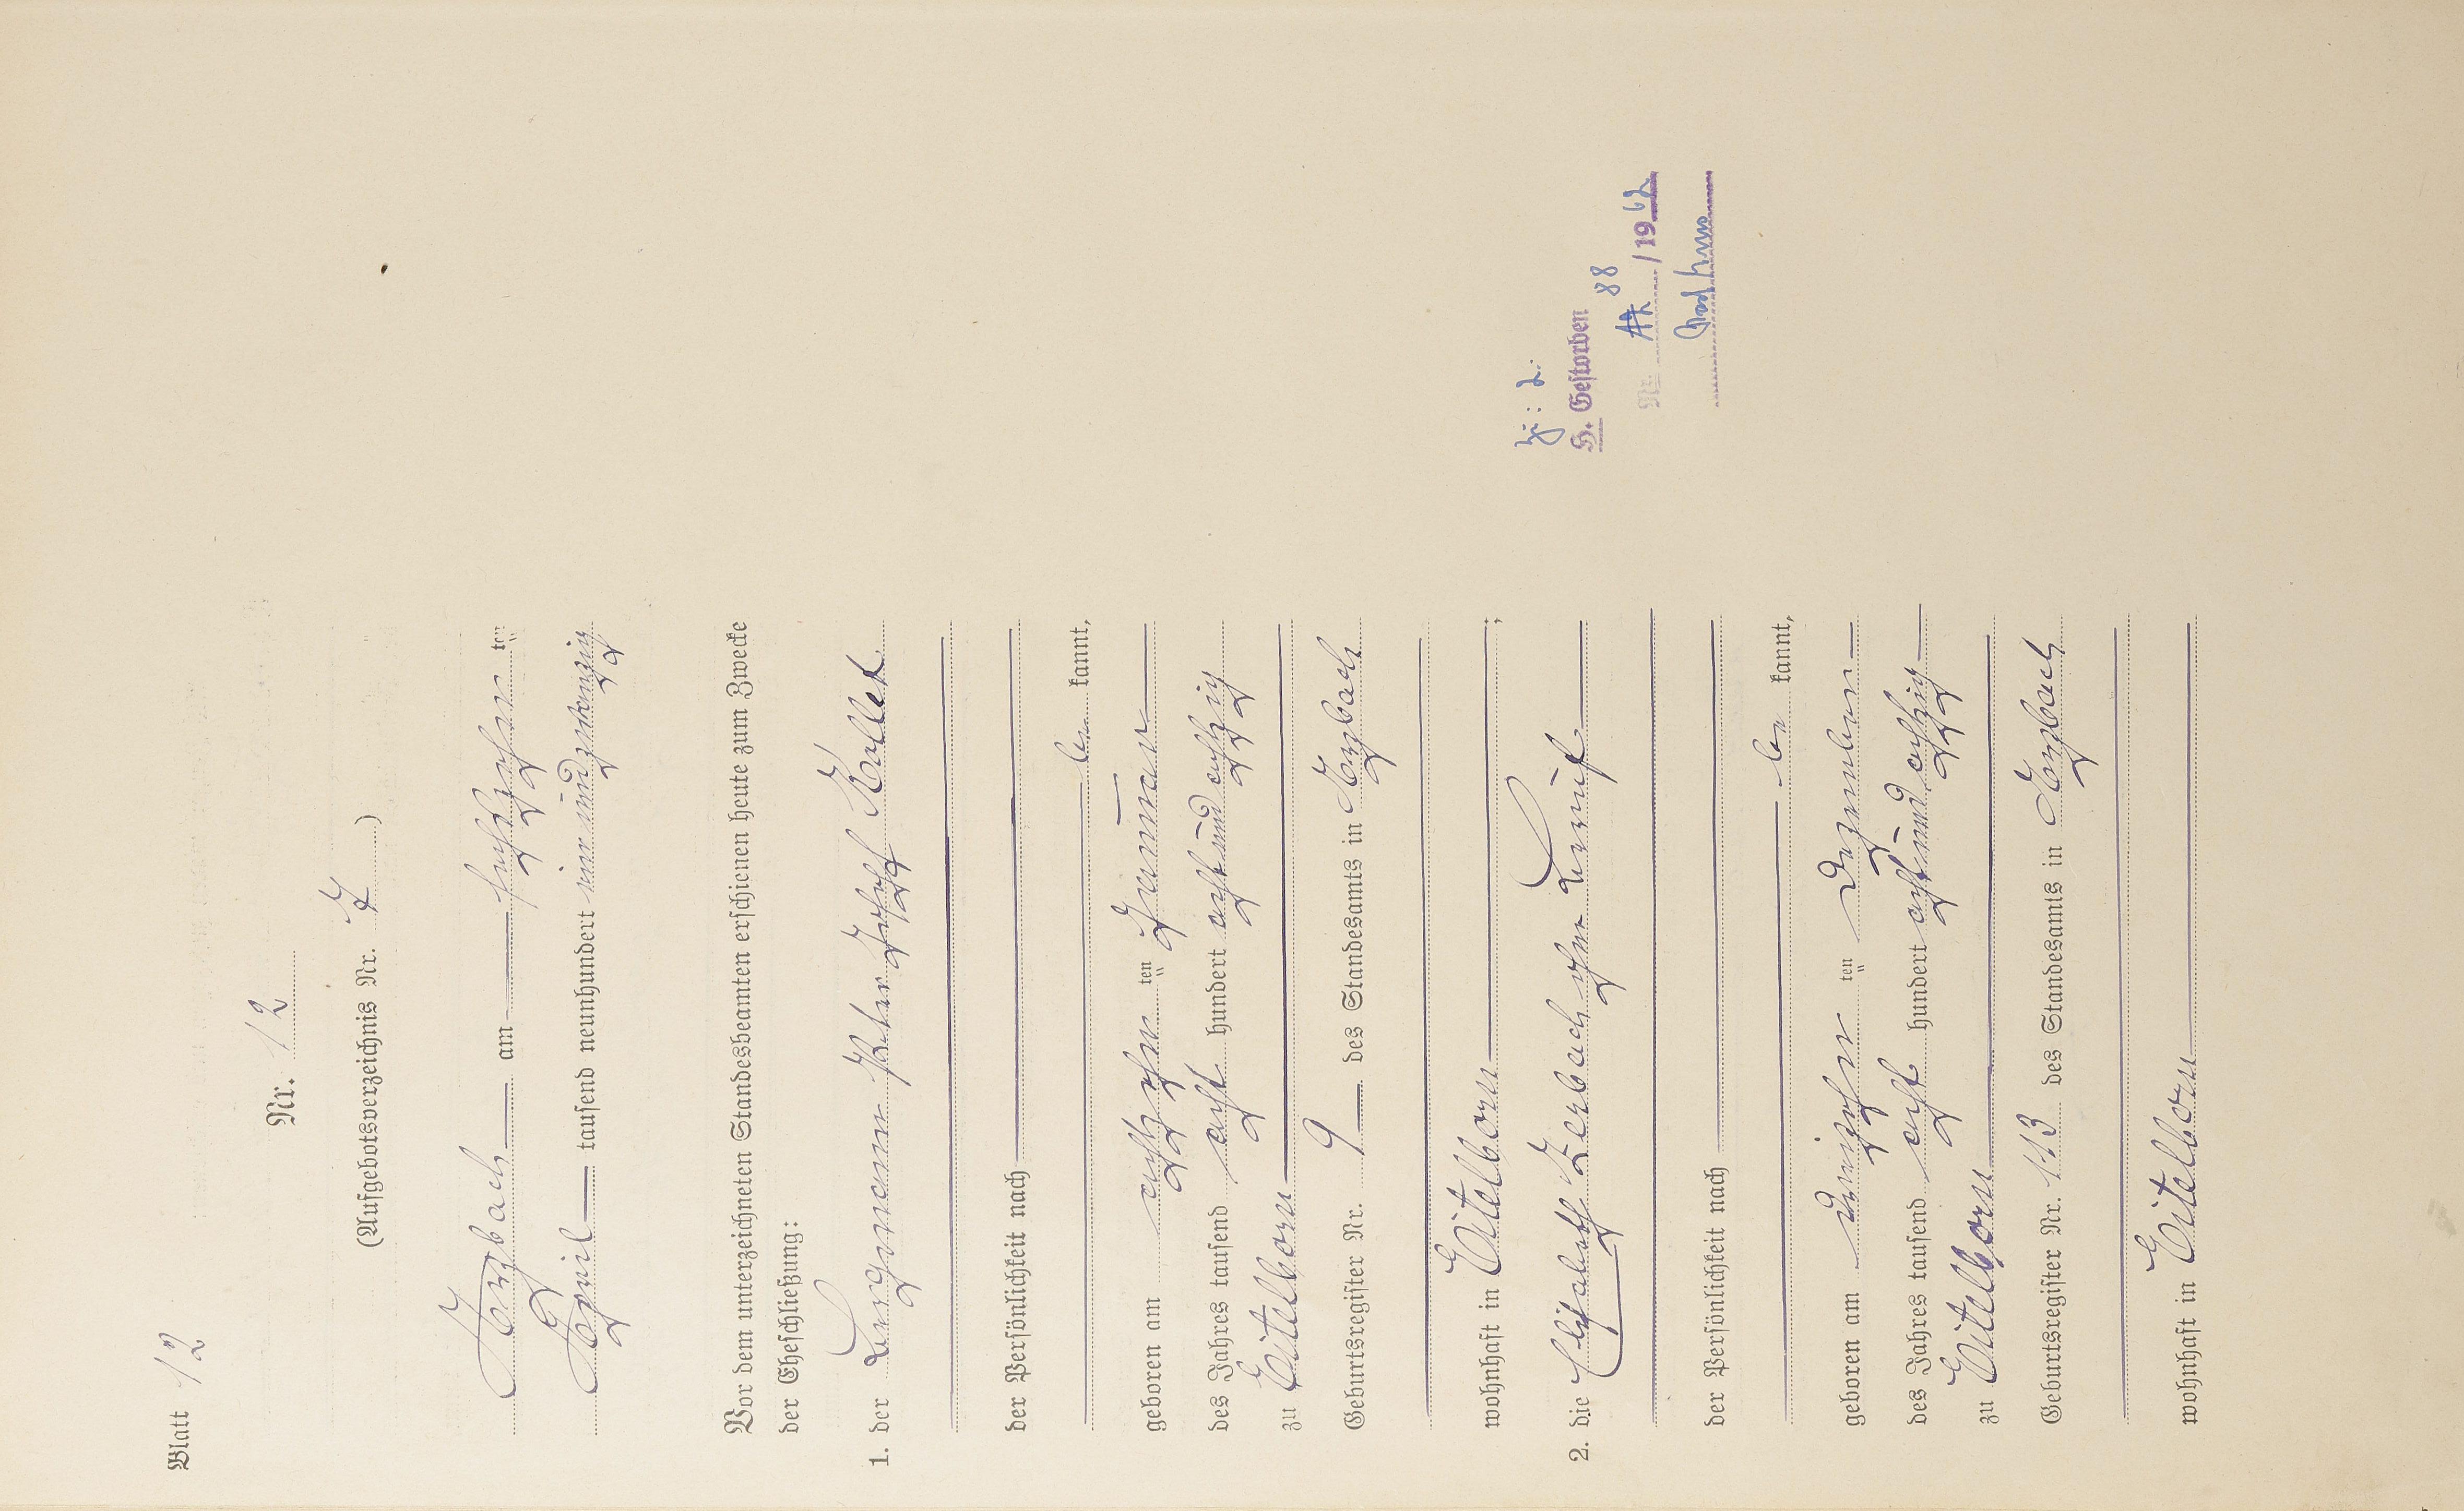 Blatt 12
Nr. 12
(Aufgebotsverzeichnis Nr. 7)
Arzbach am sechszehn ten
April tausend neunhundert ein und zwanzig
Vor dem unterzeichneten Standesbeamten erschienen heute zum Zwecke
der Eheschließung:
1. der Bergmann Peter Josef Kollet
der Persönlichkeit nach
be kannt,
geboren am achtzehn ten Januar
des Jahres tausend acht hundert acht und achtzig
zu Eitelborn
Geburtsregister Nr. 9 des Standesamts in Arzbach
wohnhaft in Eitelborn ;
2. die Elisabeth Zerbach ohne Beruf
der Persönlichkeit nach
be kannt,
geboren am dreizehn ten Dezember
des Jahres tausend acht hundert acht und achtzig
zu Eitelborn
Geburtsregister Nr. 113 des Standesamts in Arzbach
wohnhaft in Eitelborn
zu: 2.
H. Gestorben
88
Nr. /1962